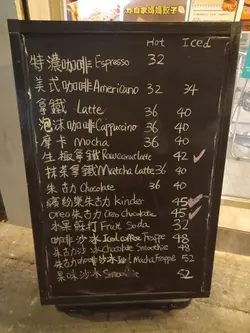 炸自家鍋鍋餃子
Hot Iced
特濃咖啡 Espresso 32
美式咖啡 Americano 32 34
拿鐵 Latte 36 40
泡沫咖啡 Cappuccino 36 40
摩卡 Mocha 36 40
生椰拿鐵 Raw coconut Latte 42
抹茶拿鐵 Matcha Latte 36 40
朱古力 Chocolate 36 40
繽紛樂朱古力 Kinder 45
Oreo朱古力 Oreo Chocolate 45
水果蘇打 Fruit Soda 32
咖啡沙冰 Iced coffee Frappe 48
朱古力沙冰 Chocolate Smoothie 48
沙冰 Iced Mocha Frappe 52
果味沙冰 Smoothie 52